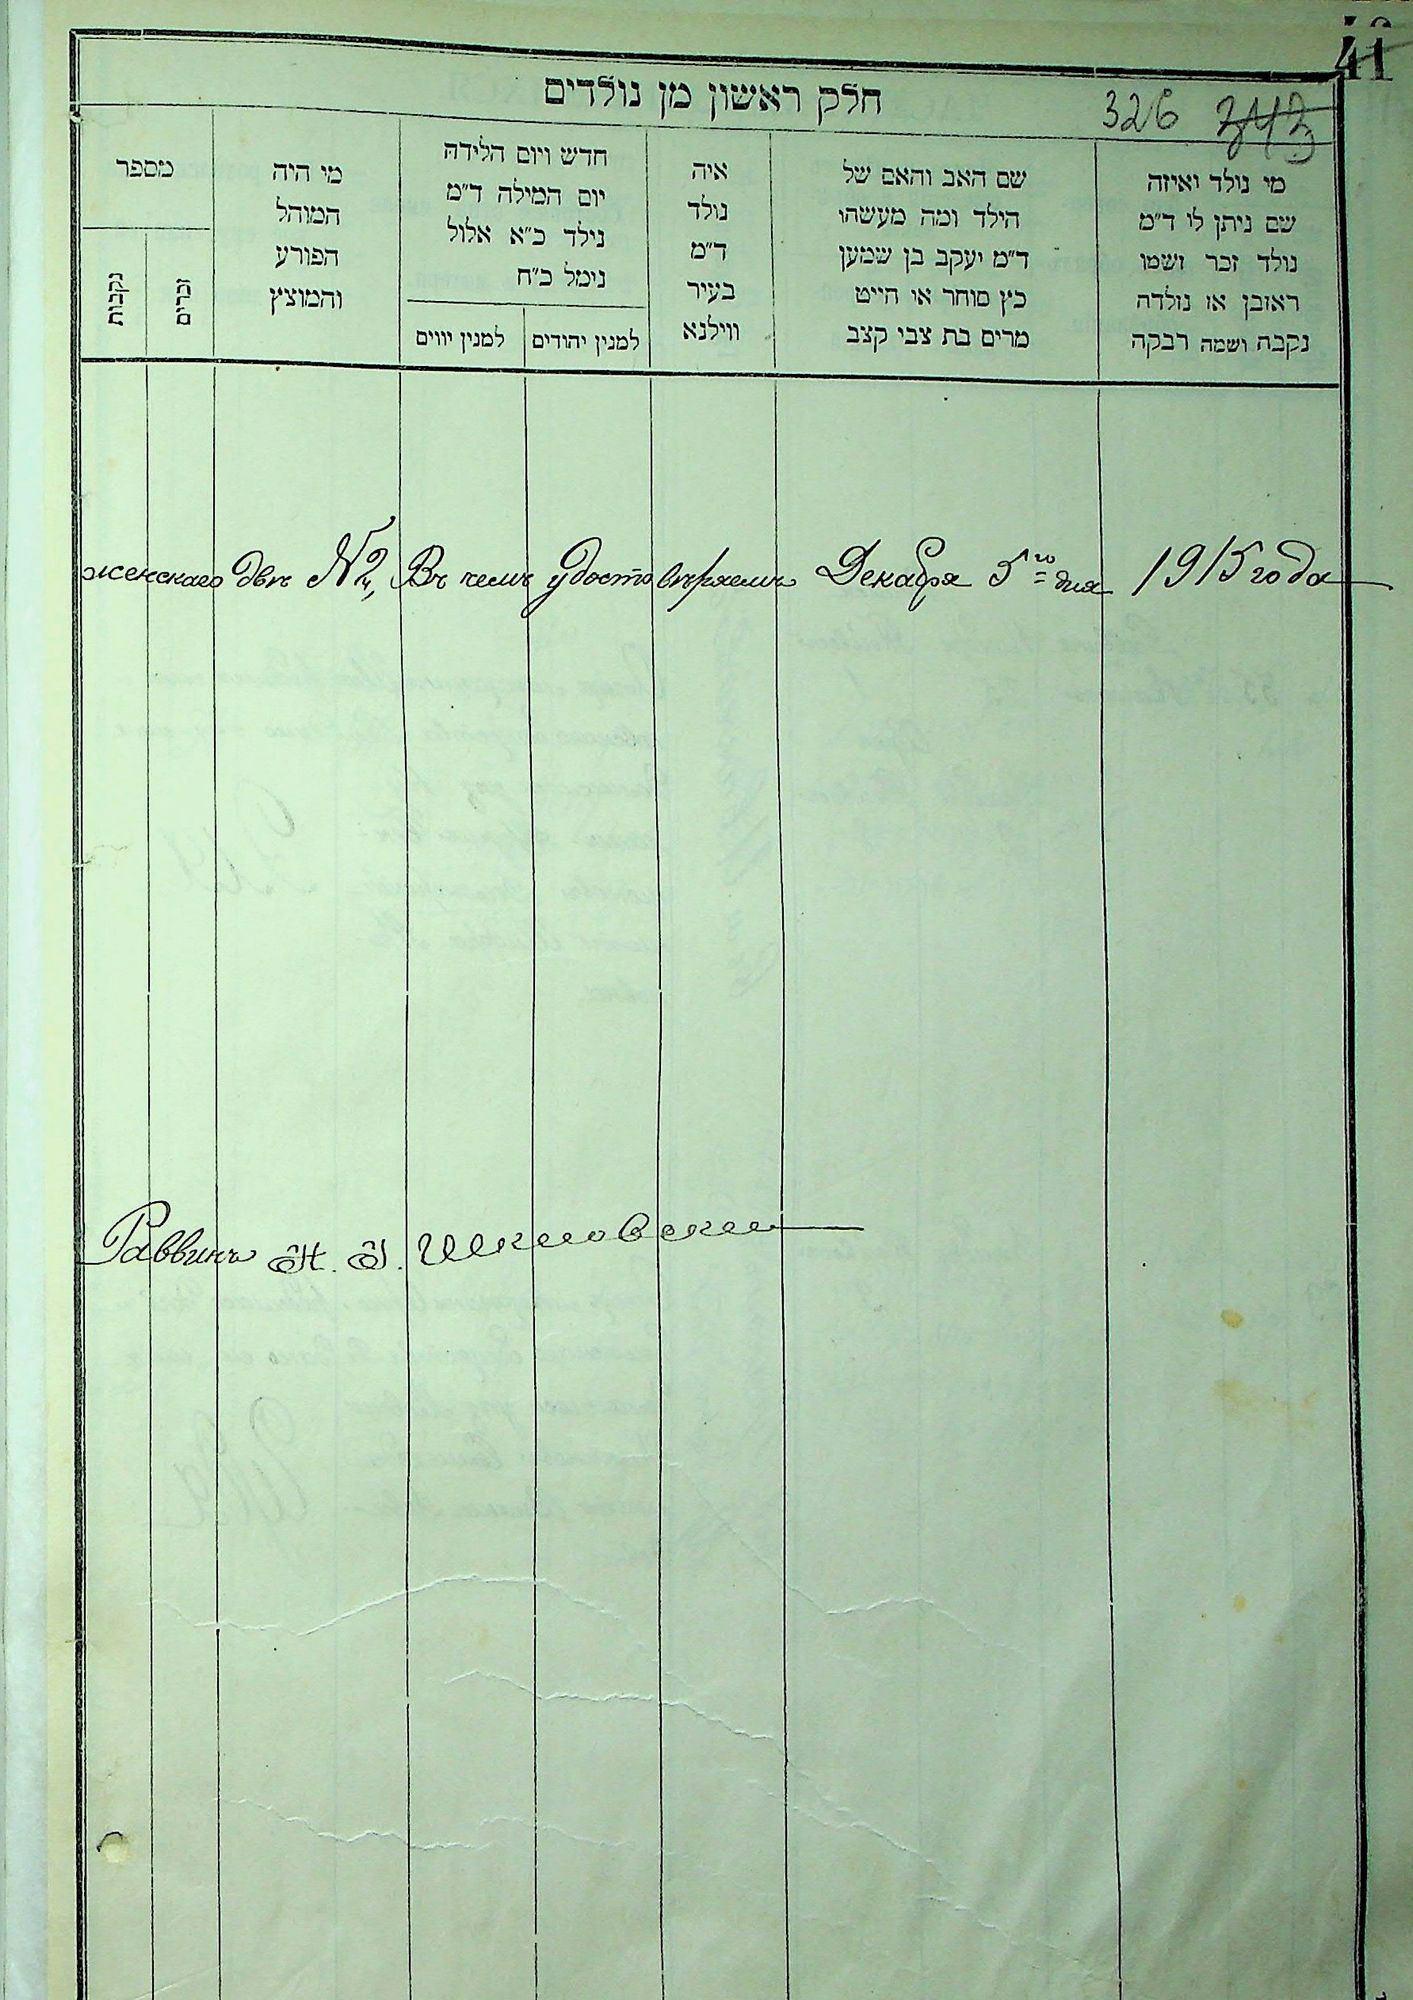 41
חלק ראשון מן נולדים
326 343
מי נולד ואיזה
שם ניתן לו ד"מ
נולד זכר ושמו
ראובן או נולדה
נקבה ושמה רבקה
שם האב והאם של
הילד ומה מעשהו
ד"מ יעקב בן שמען
כץ סוחר או חייט
מרים בת צבי קצב
איה
נולד
ד"מ
בעיר
ווילנא
חדש ויום הלידה
יום המילה ד"מ
נילד כ"א אלול
נימל כ"ח
למנין יהודים
למנין יווים
מי היה
המוהל
הפורע
והמוצץ
מספר
זכרים
נקבות
женскаго двѣ №2, Въ чемъ удостовѣряемъ Декабря 5го дня 1915 года
Раввинъ